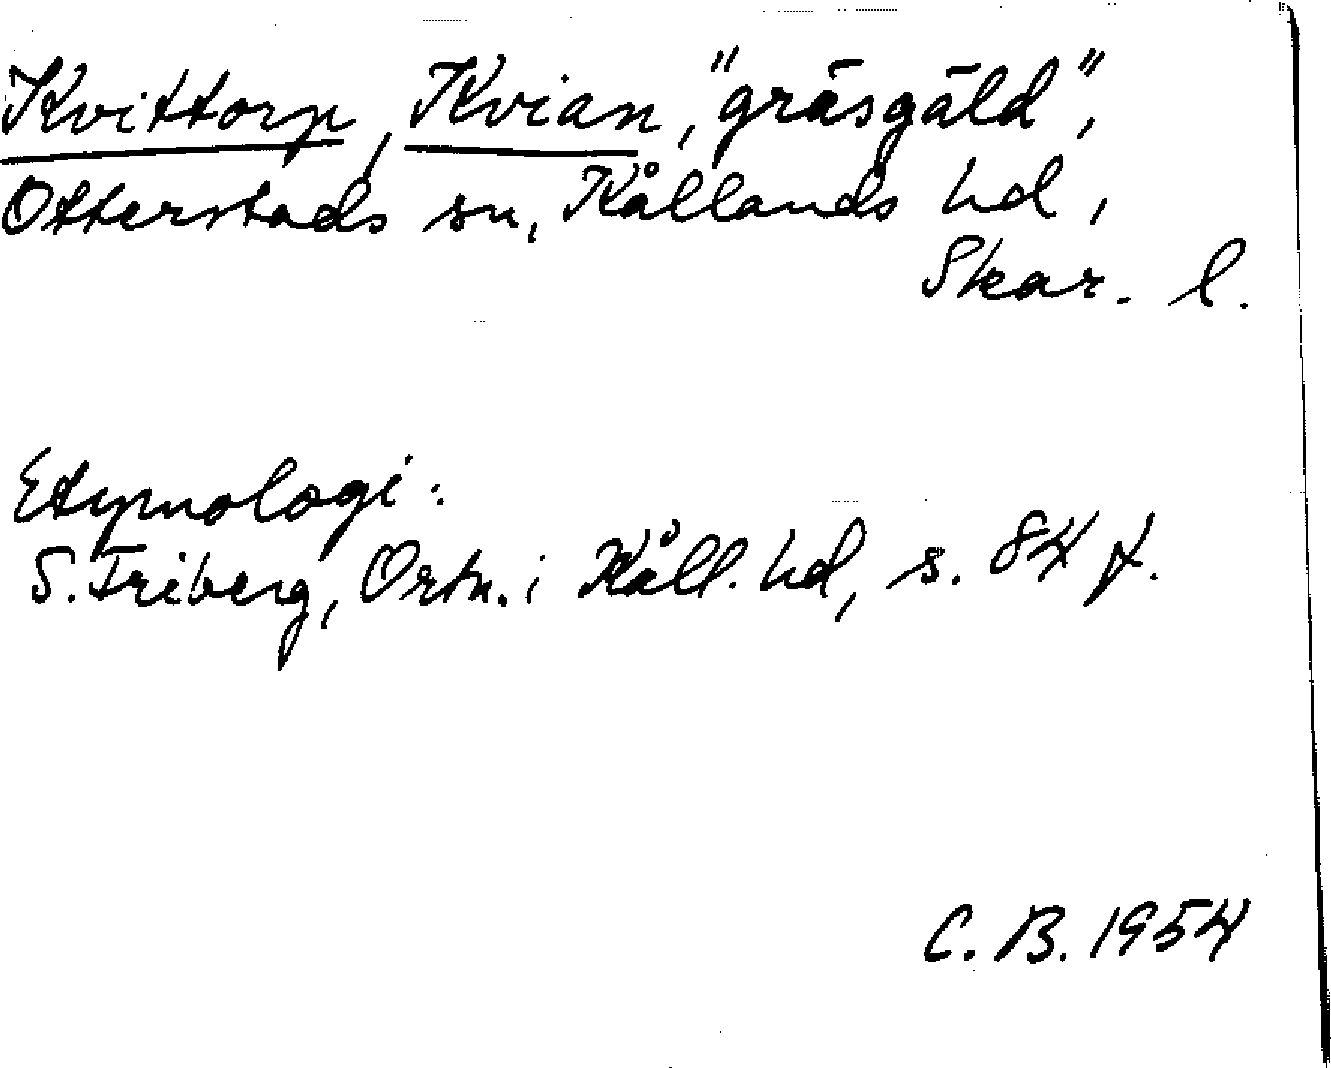 Kvittorp, Kvian, "gräsgäld",
Otterstads sn, Kållands hd,
Skar. l.
Etymologi:
S. Friberg, Ortn. i Kåll. hd, s. 84 f.
C. B. 1954